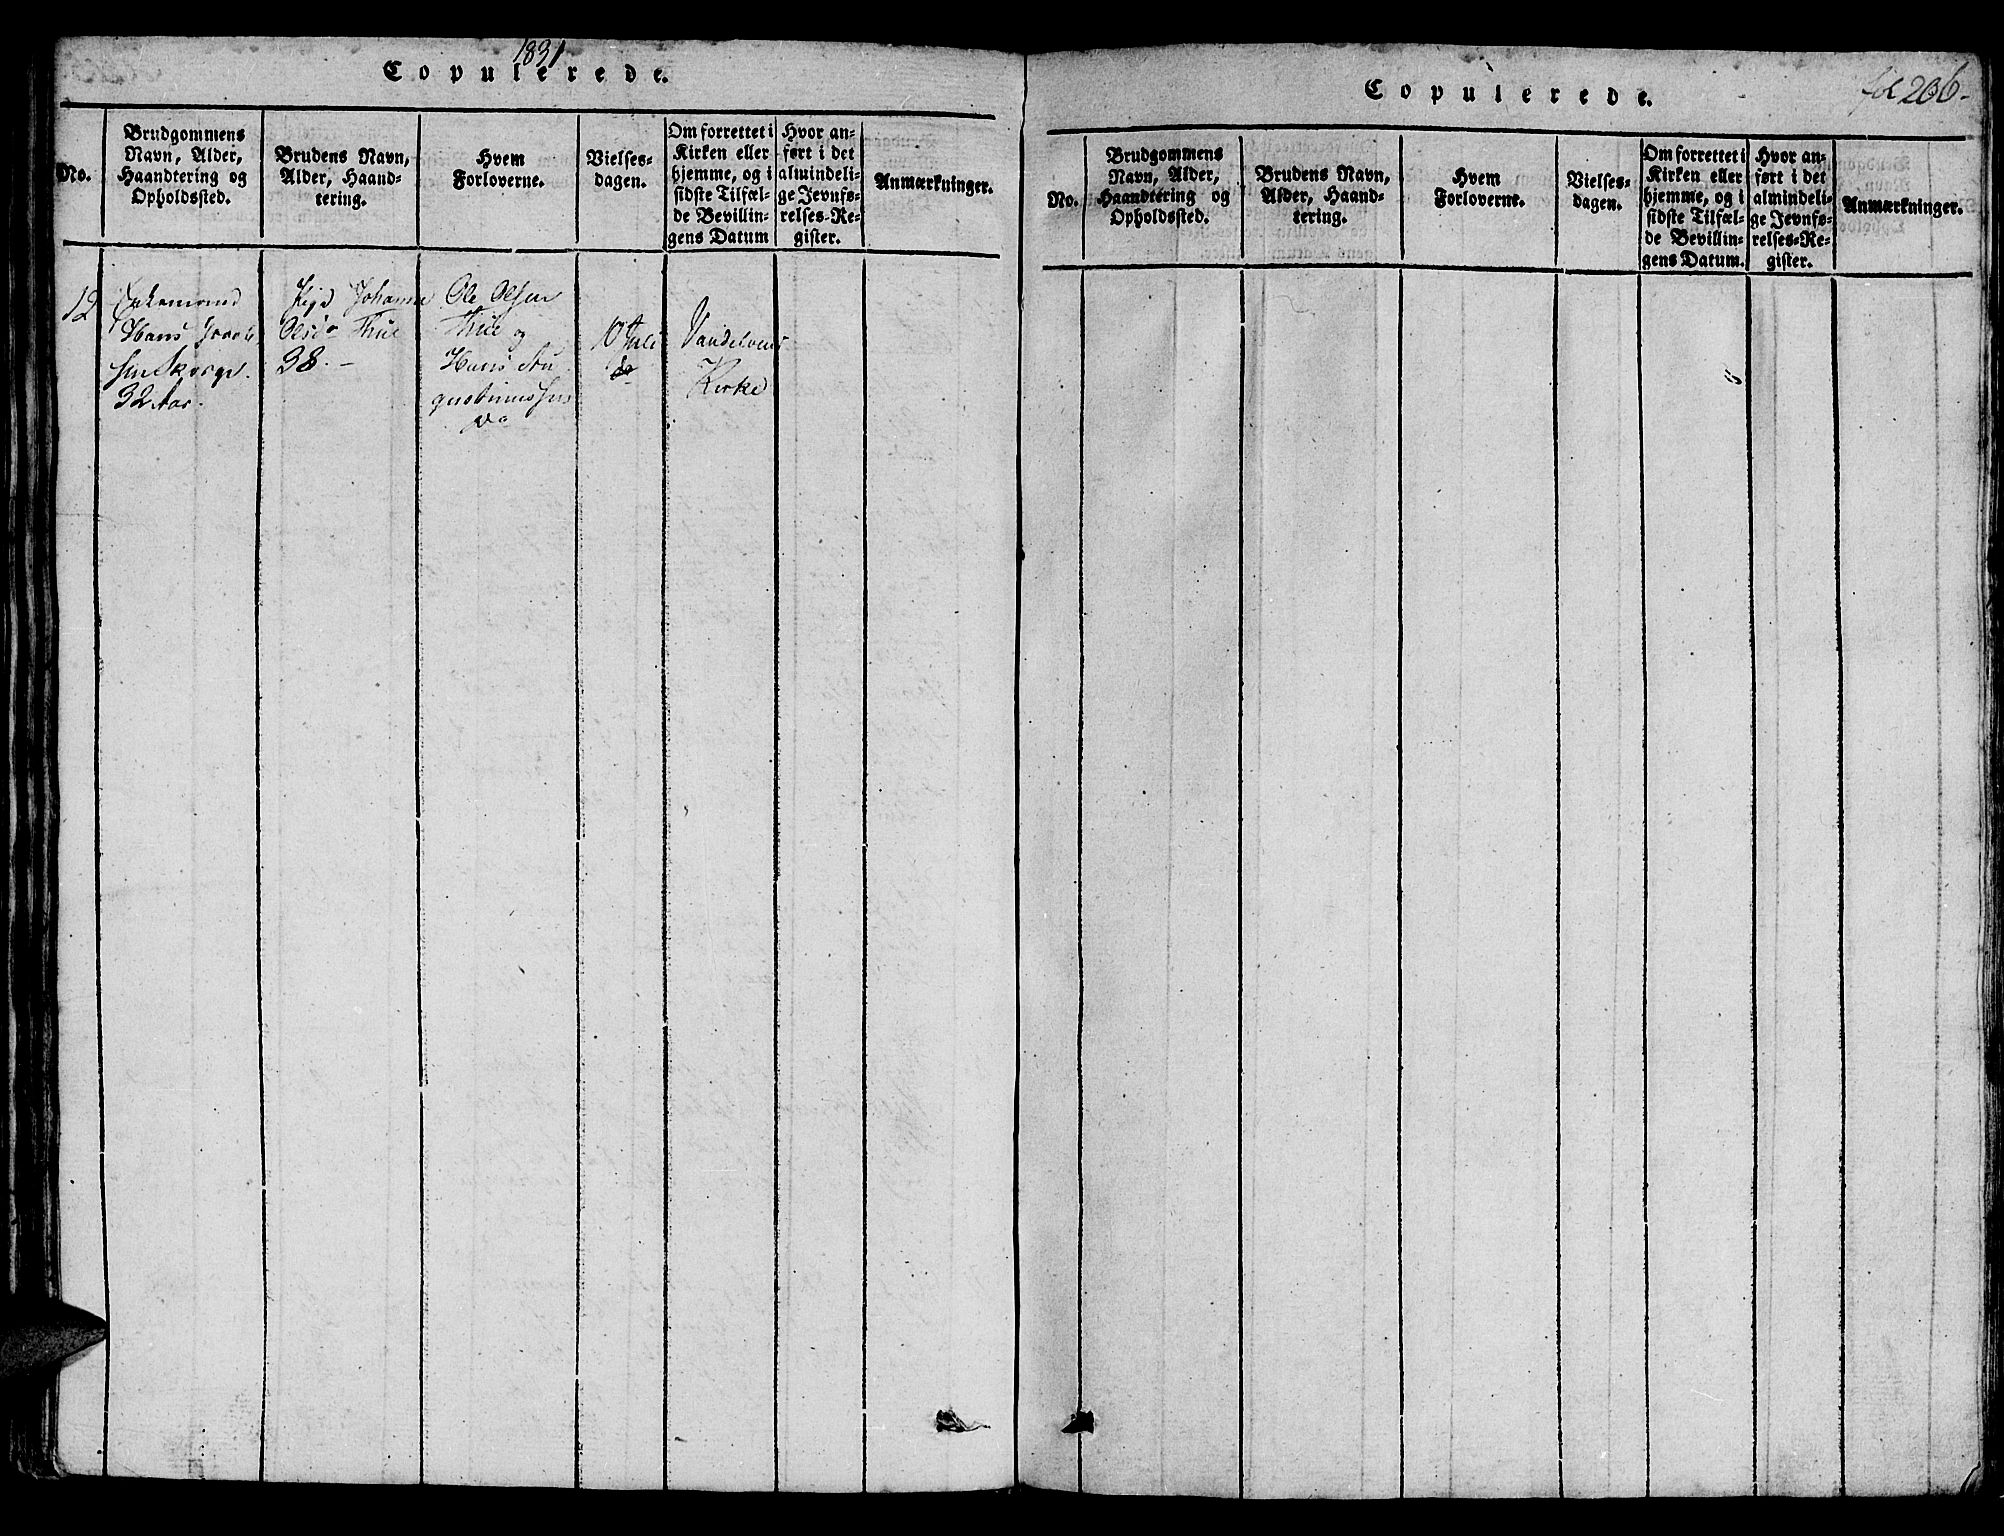 1831
Copulerede.
No.
Brudgommens
Navn, Alder,
Haandtering og
Opholdssted.
Brudens Navn,
Alder, Haand-
tering.
Hvem
Forloverne.
Vielses-
dagen.
Om forrettet i
Kirken eller
hjemme, og i
sidste Tilfæl-
de Bevillin-
gens Datum
Hvor an-
ført i det
almindeli-
ge Jevnfø-
relses-Re-
gister.
Anmærkninger.
12
Enkemand
Hans
32 Aar.
Pige Johanne
Thue
38.-
Ole Olsen
Thue og
Hans Au
gustinussen
10 Juli
Vandelvens
Kirke
fol 206.
Copulerede.
No.
Brudgommens
Navn, Alder,
Haandtering og
Opholdssted.
Brudens Navn,
Alder, Haand-
tering.
Hvem
Forloverne.
Vielses-
dagen.
Om forrettet i
Kirken eller
hjemme, og i
sidste Tilfæl-
de Bevillin-
gens Datum.
Hvor an-
ført i det
almindeli-
ge Jevnfø-
relses-Re-
gister.
Anmærkninger.